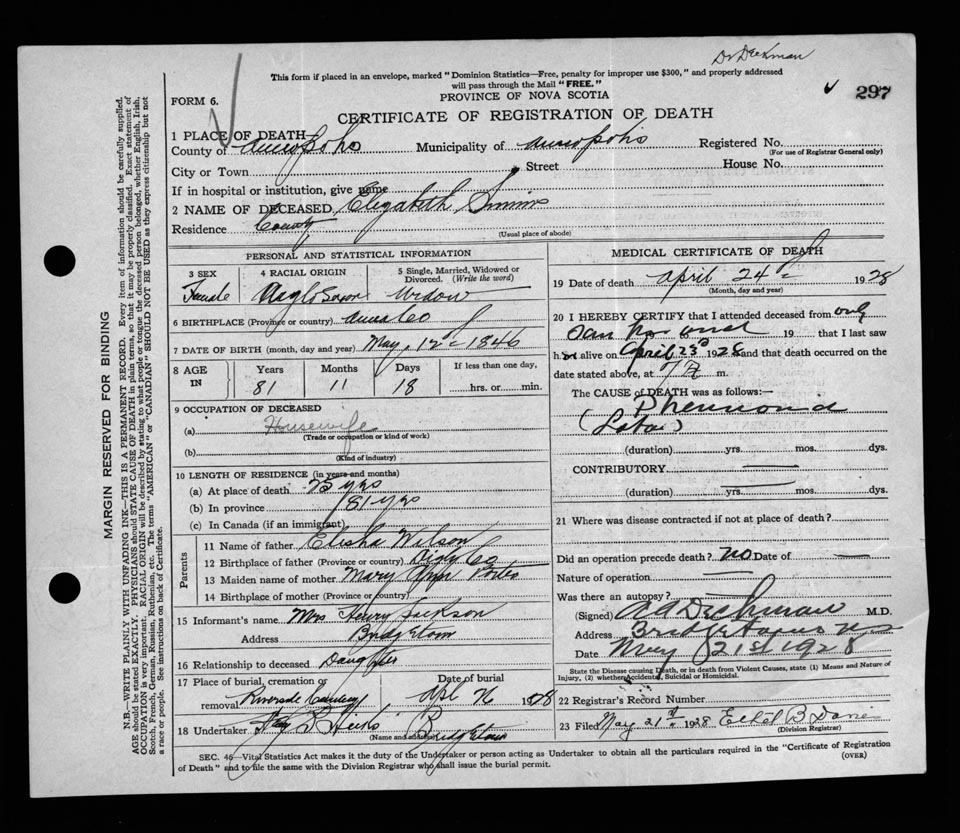 Dr Deckman
This form if placed in an envelope, marked "Dominion Statistics—Free, penalty for improper use $300," and properly addressed
will pass through the Mail "FREE."
297
PROVINCE OF NOVA SCOTIA
FORM 6.
CERTIFICATE OF REGISTRATION OF DEATH
1 PLACE OF DEATH
County of Annapolis Municipality of Annapolis Registered No.
(For use of Registrar General only)
City or Town Street House No.
If in hospital or institution, give name
2 NAME OF DECEASED Elizabeth
Residence County
(Usual place of abode)
PERSONAL AND STATISTICAL INFORMATION
3 SEX
Female
4 RACIAL ORIGIN
Anglo Saxon
5 Single, Married, Widowed or
Divorced. (Write the word)
Widow
6 BIRTHPLACE (Province or country) Anna Co
7 DATE OF BIRTH (month, day and year) May 12 1846
8 AGE
IN
Years
81
Months
11
Days
18
If less than one day,
hrs. or min.
9 OCCUPATION OF DECEASED
(a) Housewife
(Trade or occupation or kind of work)
(b)
(Kind of industry)
10 LENGTH OF RESIDENCE (in years and months)
(a) At place of death 75 yrs
(b) In province 81 yrs
(c) In Canada (if an immigrant)
Parents
11 Name of father Elisha Wilson
12 Birthplace of father (Province or country) Digby Co
13 Maiden name of mother Mary Ann Porter
14 Birthplace of mother (Province or country)
15 Informant's name Mrs Henry Jackson
Address Bridgetown
16 Relationship to deceased Daughter
17 Place of burial, cremation or Date of burial
removal Riverside Cemetery Apl 26 1928
18 Undertaker Hicks Bridgetown
(Name and address)
MEDICAL CERTIFICATE OF DEATH
19 Date of death April 24 1928
(Month, day and year)
20 I HEREBY CERTIFY that I attended deceased from only
19 that I last saw
her alive on April 23d 1928 and that death occurred on the
date stated above, at m.
The CAUSE of DEATH was as follows:
Pneumonia
(Lobar)
(duration) yrs. mos. dys.
CONTRIBUTORY
(duration) yrs. mos. dys.
21 Where was disease contracted if not at place of death?
Did an operation precede death? no Date of
Nature of operation
Was there an autopsy?
(Signed) A A Deckman M.D.
Address Bridgetown NS
Date May 21st 1928
State the Disease causing Death, or in death from Violent Causes, state (1) Means and Nature of
Injury, (2) whether Accidental, Suicidal or Homicidal.
22 Registrar's Record Number
23 Filed May 21st 1928 Ethel B Davies
(Division Registrar)
SEC. 46—Vital Statistics Act makes it the duty of the Undertaker or person acting as Undertaker to obtain all the particulars required in the "Certificate of Registration
of Death" and to file the same with the Division Registrar who shall issue the burial permit.
(OVER)
MARGIN RESERVED FOR BINDING
N.B.—WRITE PLAINLY WITH UNFADING INK—THIS IS A PERMANENT RECORD. Every item of information should be carefully supplied.
AGE should be stated EXACTLY. PHYSICIANS should STATE CAUSE OF DEATH in plain terms, so that it may be properly classified. Exact statement of
OCCUPATION is very important. RACIAL ORIGIN will be described by stating to what people or tongue the deceased person belonged, whether English, Irish,
Scotch, French, German, Russian, Ruthenian, etc. The terms "AMERICAN" or "CANADIAN" SHOULD NOT BE USED as they express citizenship but not
a race or people. See instructions on back of Certificate.